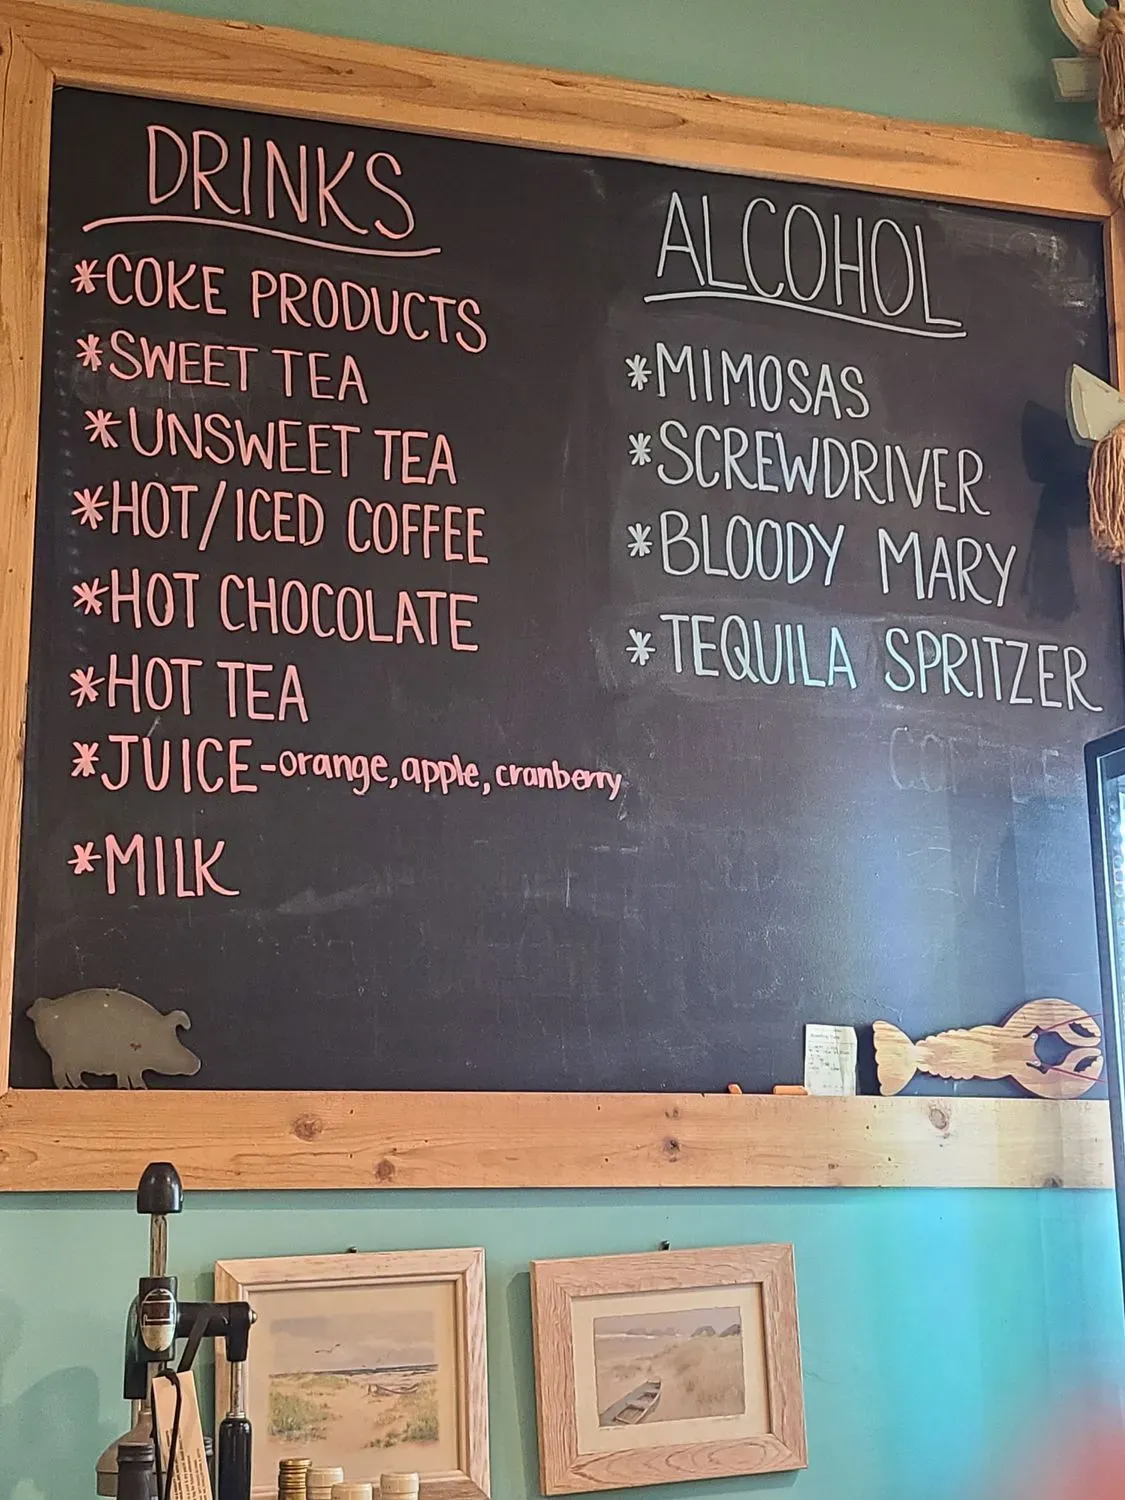 DRINKS
*COKE PRODUCTS
*SWEET TEA
*UNSWEET TEA
*HOT/ICED COFFEE
*HOT CHOCOLATE
*HOT TEA
*JUICE-orange, apple, cranberry
*MILK
ALCOHOL
*MIMOSAS
*SCREWDRIVER
*BLOODY MARY
*TEQUILA SPRITZER